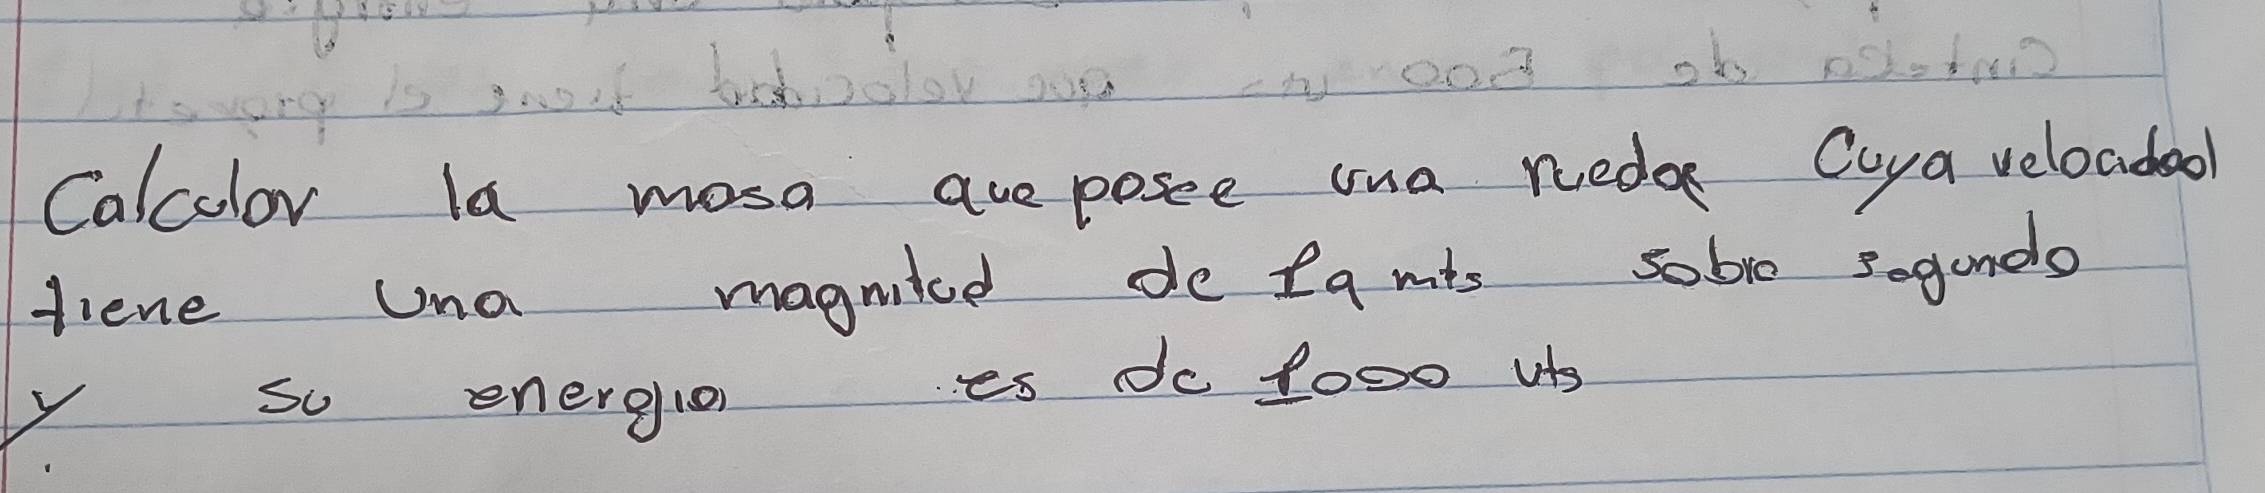 Calcular la masa que posee una rueda cuya velocidad
tiene una magnitud de 19 mts sobre segundo
y su energia es de 1000 uts